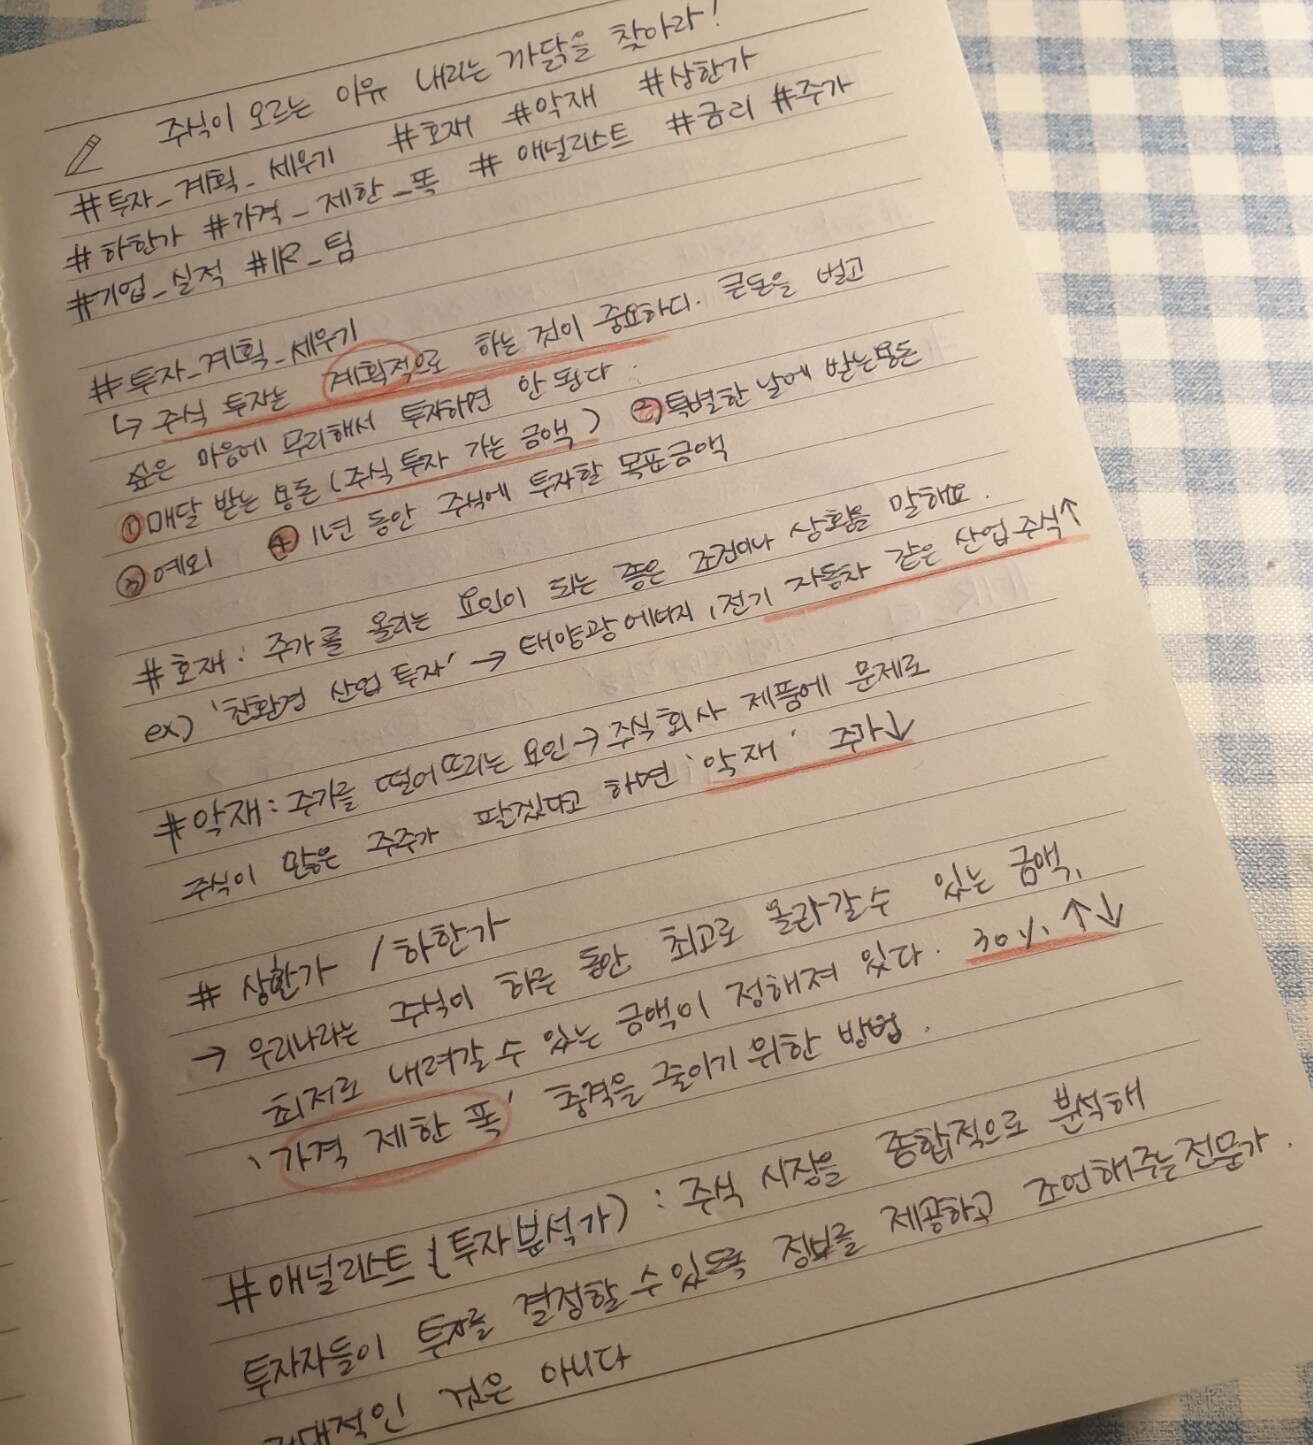 주식이 오르는 이유 내리는 까닭을 찾아라!
#투자_계획_세우기 #호재 #악재 #상한가
#하한가 #가격_제한_폭 #애널리스트 #금리 #주가
#기업_실적 #IR_팀
#투자_계획_세우기
↳ 주식 투자는 계획적으로 하는 것이 중요하다. 큰돈을 벌고
싶은 마음에 무리해서 투자하면 안 된다.
① 매달 받는 용돈 (주식 투자 가능 금액) ② 특별한 날에 받는용돈
③ 예외 ④ 1년 동안 주식에 투자할 목표금액
#호재: 주가를 올리는 요인이 되는 좋은 조건이나 상황을 말해요.
ex) '친환경 산업 투자' → 태양광 에너지, 전기 자동차 같은 산업 주식↑
#악재: 주가를 떨어뜨리는 요인 → 주식회사 제품에 문제로
주식이 많은 주주가 팔겠다고 하면 '악재' 주가↓
# 상한가 / 하한가
→ 우리나라는 주식이 하루 동안 최고로 올라갈수 있는 금액,
최저로 내려갈 수 있는 금액이 정해져 있다. 30% ↑↓
'가격 제한 폭' 충격을 줄이기 위한 방법.
#애널리스트 (투자분석가) : 주식 시장을 종합적으로 분석해
투자자들이 투자를 결정할 수 있도록 정보를 제공하고 조언해주는 전문가.
것은 아니다